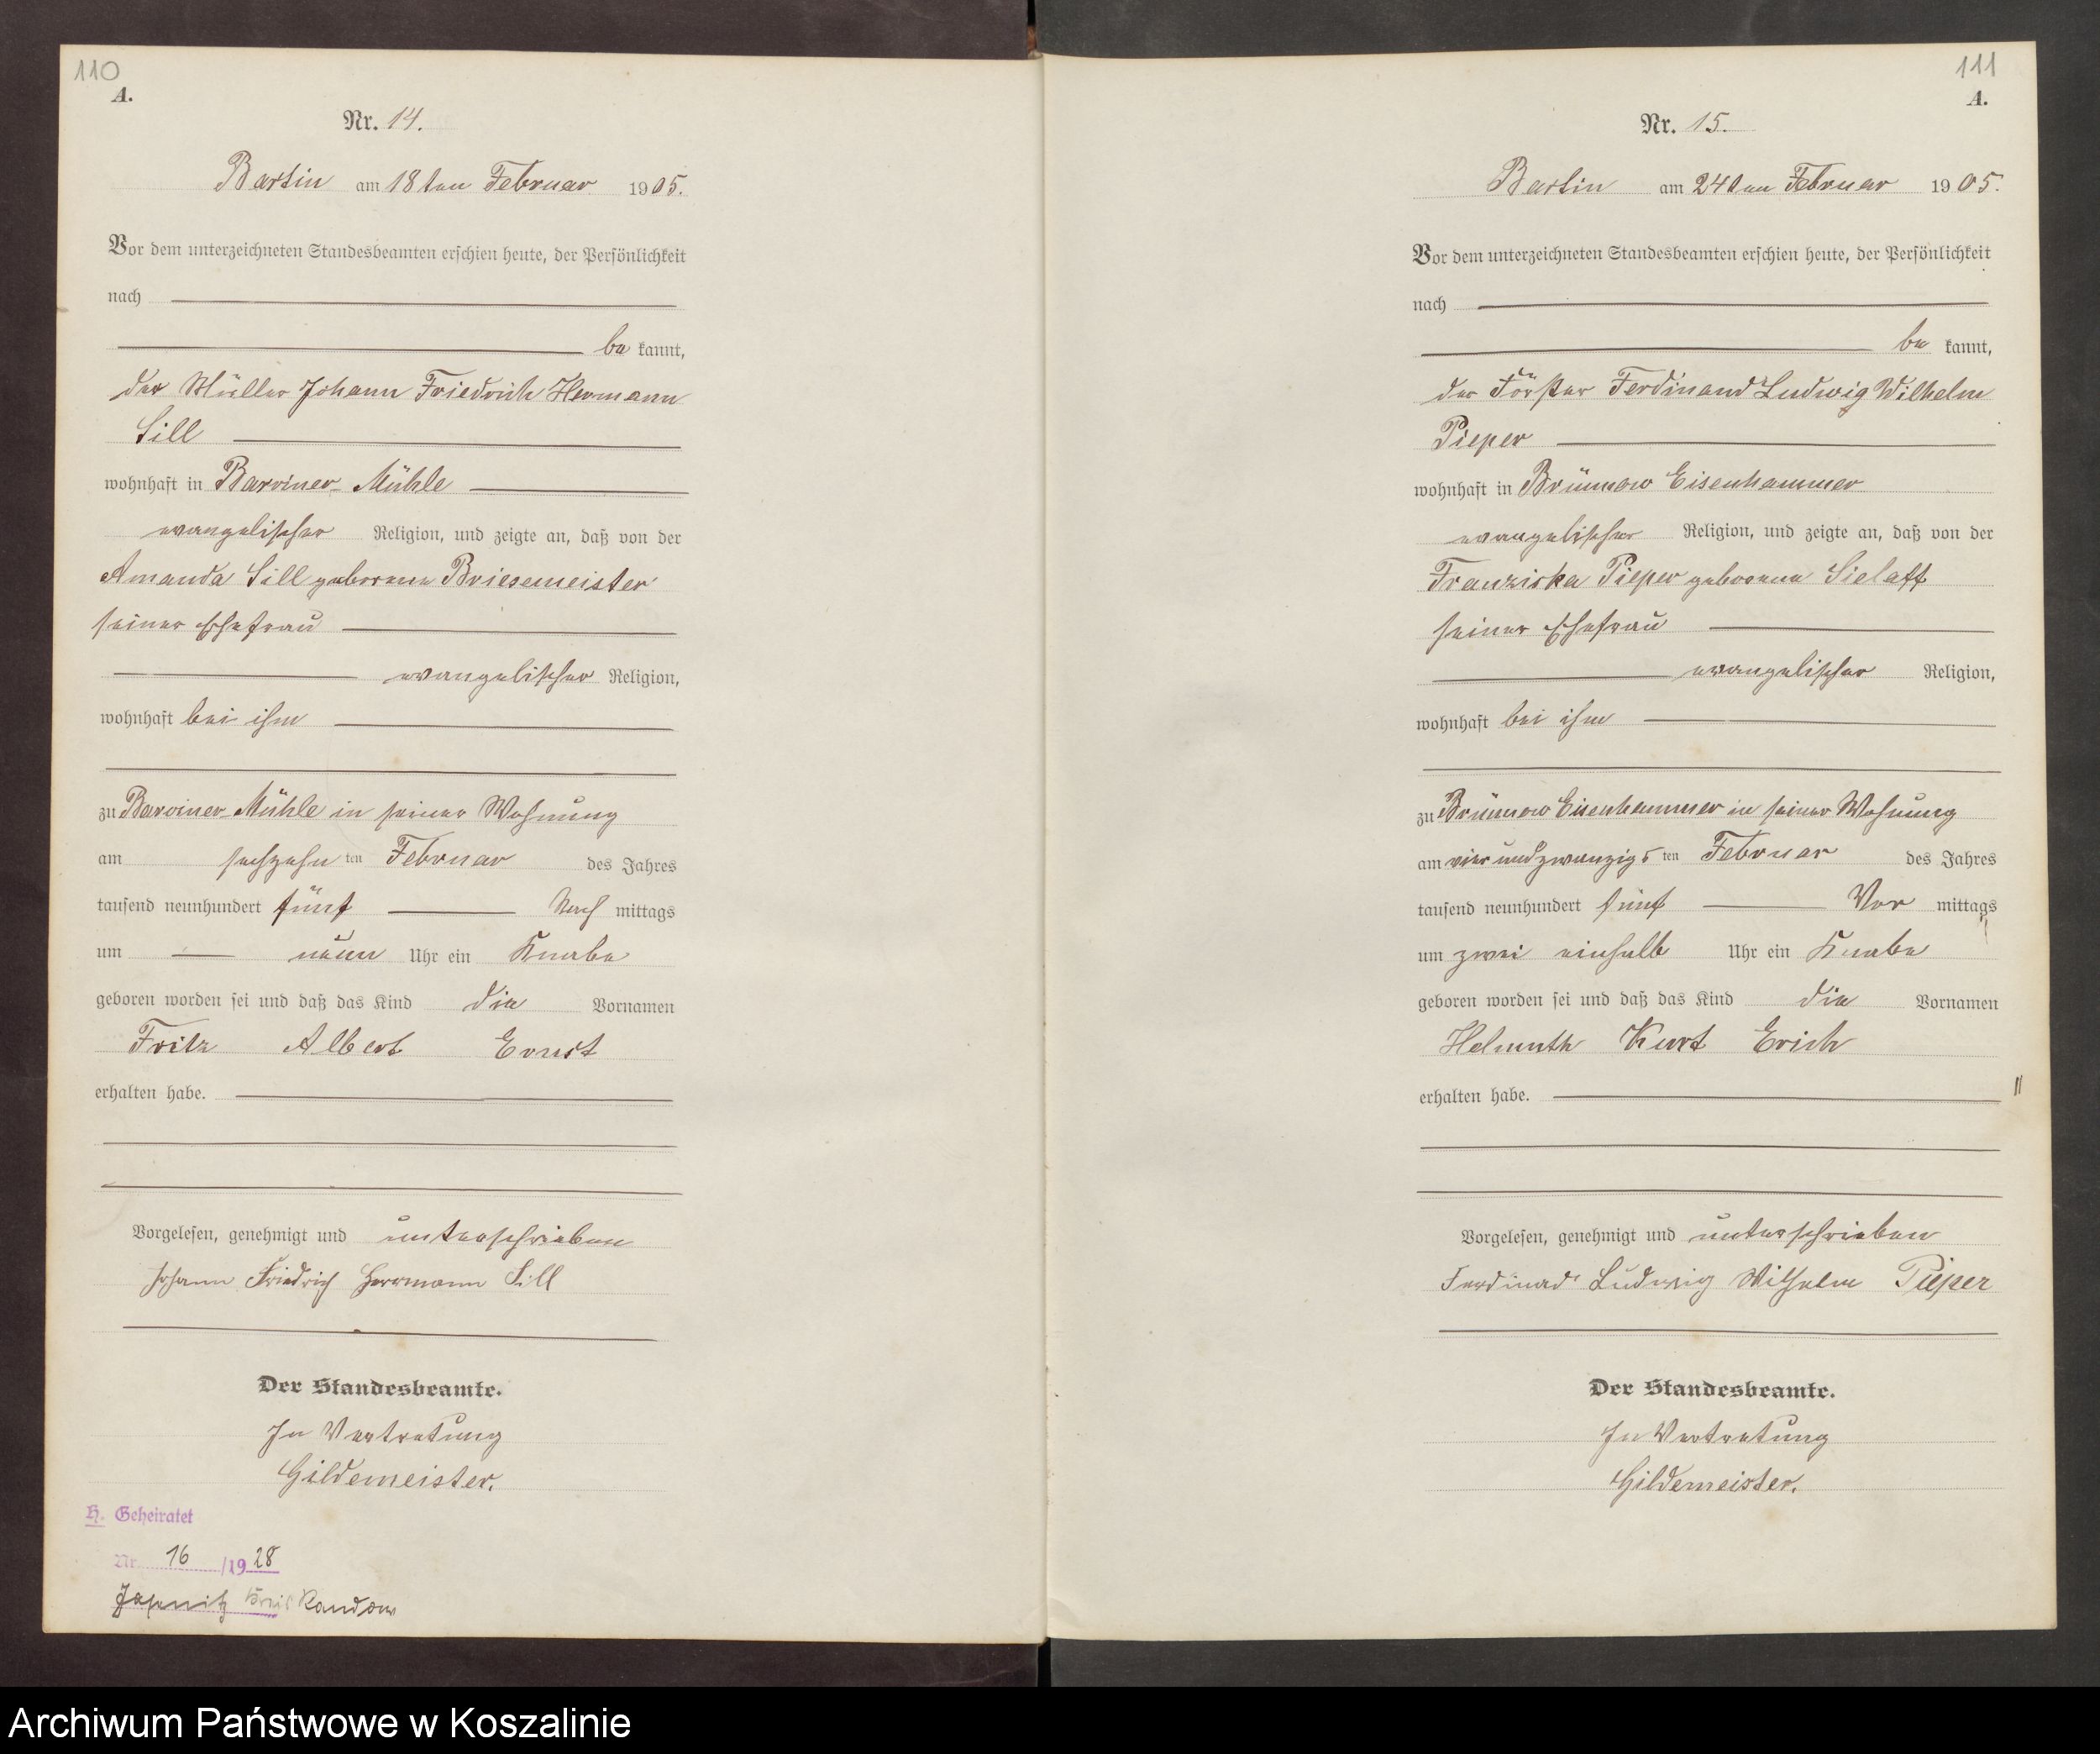 110
A.
Nr. 14.
Bartin am 18ten Februar 1905.
Vor dem unterzeichneten Standesbeamten erschien heute, der Persönlichkeit
nach
be kannt,
der Müller Johann Friedrich Hermann
Sill
wohnhaft in Barviner Mühle
evangelischer Religion, und zeigte an, daß von der
Amanda Sill geborene Briesemeister
seiner Ehefrau
evangelischer Religion,
wohnhaft bei ihm
zu Barviner Mühle in seiner Wohnung
am sechzehn ten Februar des Jahres
tausend neunhundert fünf Nach mittags
um neun Uhr ein Knabe
geboren worden sei und daß das Kind die Vornamen
Fritz Albert Ernst
erhalten habe.
Vorgelesen, genehmigt und unterschrieben
Johann Friedrich Herrmann Sill
Der Standesbeamte.
In Vertretung
Gildemeister.
H. Geheiratet
Nr. 16 /1928
Jasenitz Kreis Randow
111
A.
Nr. 15.
Bartin am 24ten Februar 1905.
Vor dem unterzeichneten Standesbeamten erschien heute, der Persönlichkeit
nach
be kannt,
der Förster Ferdinand Ludwig Wilhelm
Pieper
wohnhaft in Brünnow Eisenhammer
evangelischer Religion, und zeigte an, daß von der
Franziska Pieper geborene Sielaff
seiner Ehefrau
evangelischer Religion,
wohnhaft bei ihm
zu Brünnow Eisenhammer in seiner Wohnung
am vier und zwanzigs ten Februar des Jahres
tausend neunhundert fünf Vor mittags
um zwei einhalb Uhr ein Knabe
geboren worden sei und daß das Kind die Vornamen
Helmuth Kurt Erich
erhalten habe.
Vorgelesen, genehmigt und unterschrieben
Ferdinad Ludwig Wilhelm Pieper
Der Standesbeamte.
In Vertretung
Gildemeister.
Archiwum Państwowe w Koszalinie